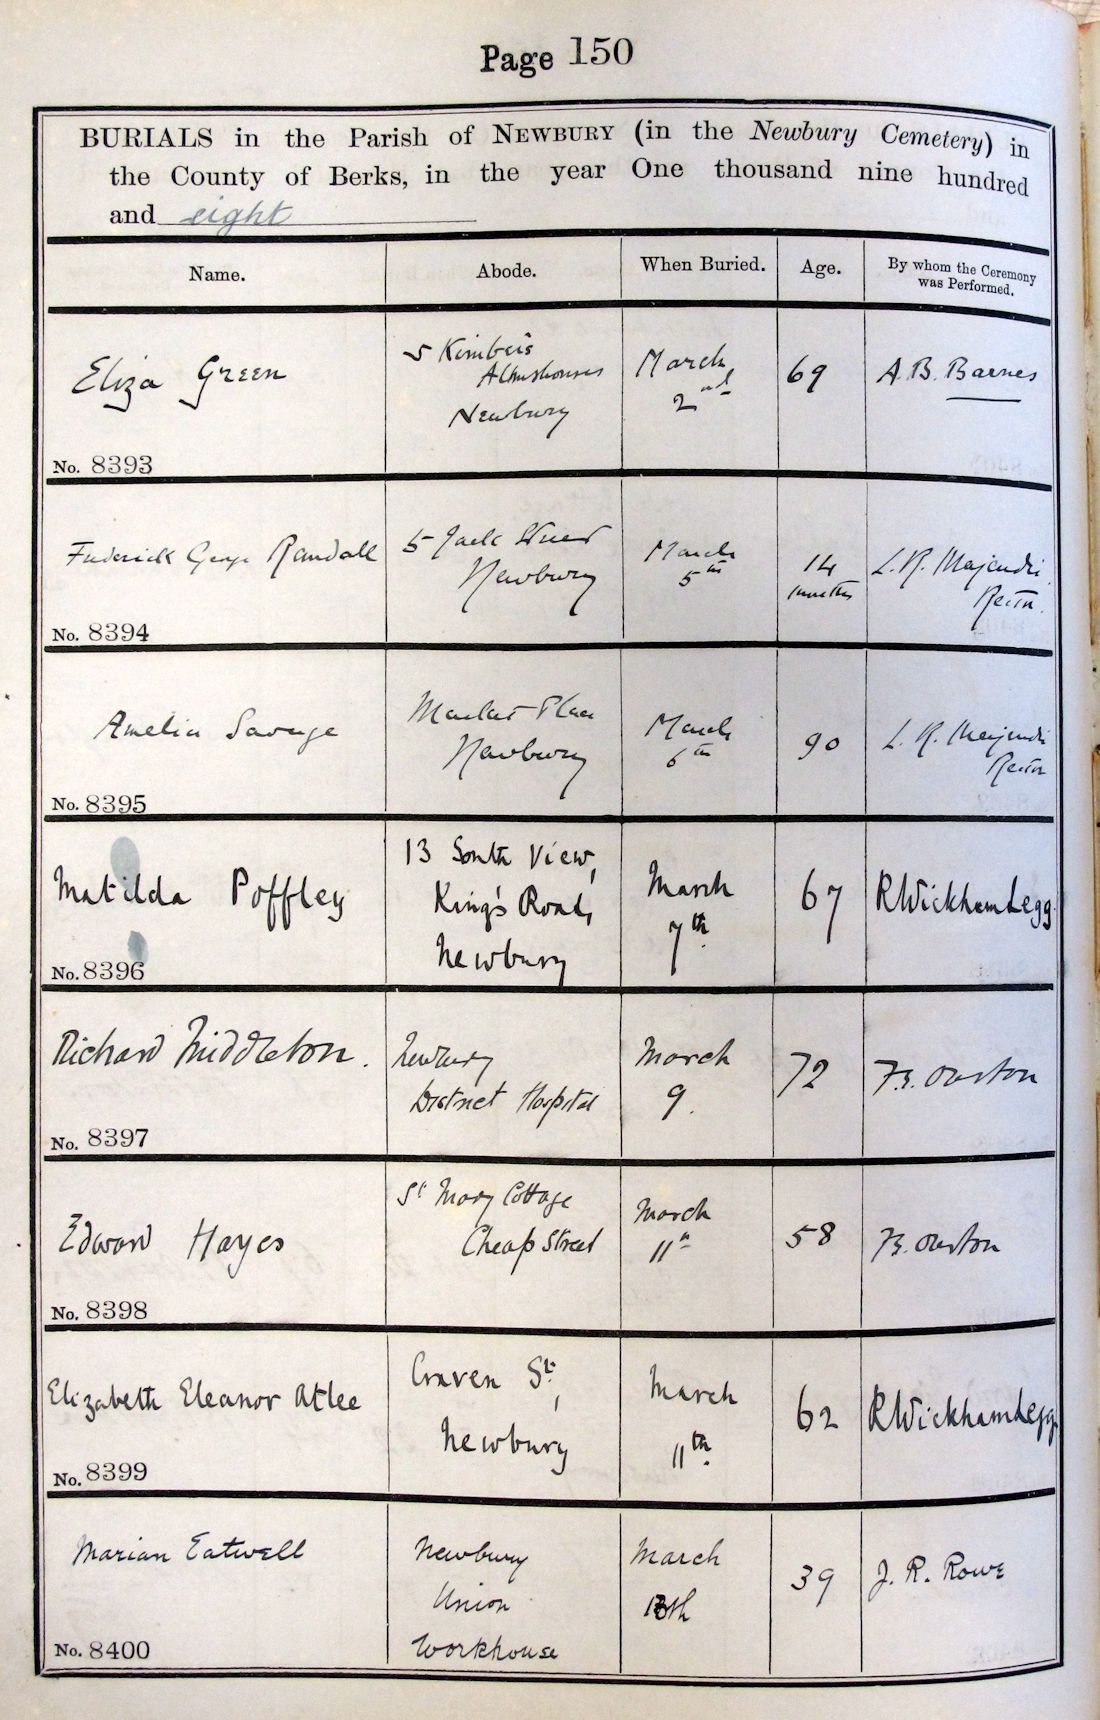 Page 150
BURIALS in the Parish of NEWBURY (in the Newbury Cemetery) in
the County of Berks, in the year One thousand nine hundred
and eight
Name. Abode. When Buried. Age. By whom the Ceremony was Performed.
Eliza Green
5 Kimber's
Almshouses
Newbury
March
2nd
69
A. B. Barnes
No. 8393
Frederick George Randall
5 Jack Street
Newbury
March
5th
14
months
L. R. Majendie
Rector.
No. 8394
Amelia Savage
Market Place
Newbury
March
6th
90
L. R. Majendie
Rector
No. 8395
Matilda Poffley
13 South View,
King's Road,
Newbury
March
7th
67
R Wickham Legg.
No. 8396
Richard Middleton.
Newbury
District Hospital
March
9.
72
No. 8397
Edward Hayes
St Mary Cottage
Cheap Street
March
11th
58
No. 8398
Elizabeth Eleanor Atlee
Craven St,
Newbury
March
11th.
62
R Wickham Legg.
No. 8399
Marian Eatwell
Newbury
Union
Workhouse
March
39
J. R. Rowe
No. 8400